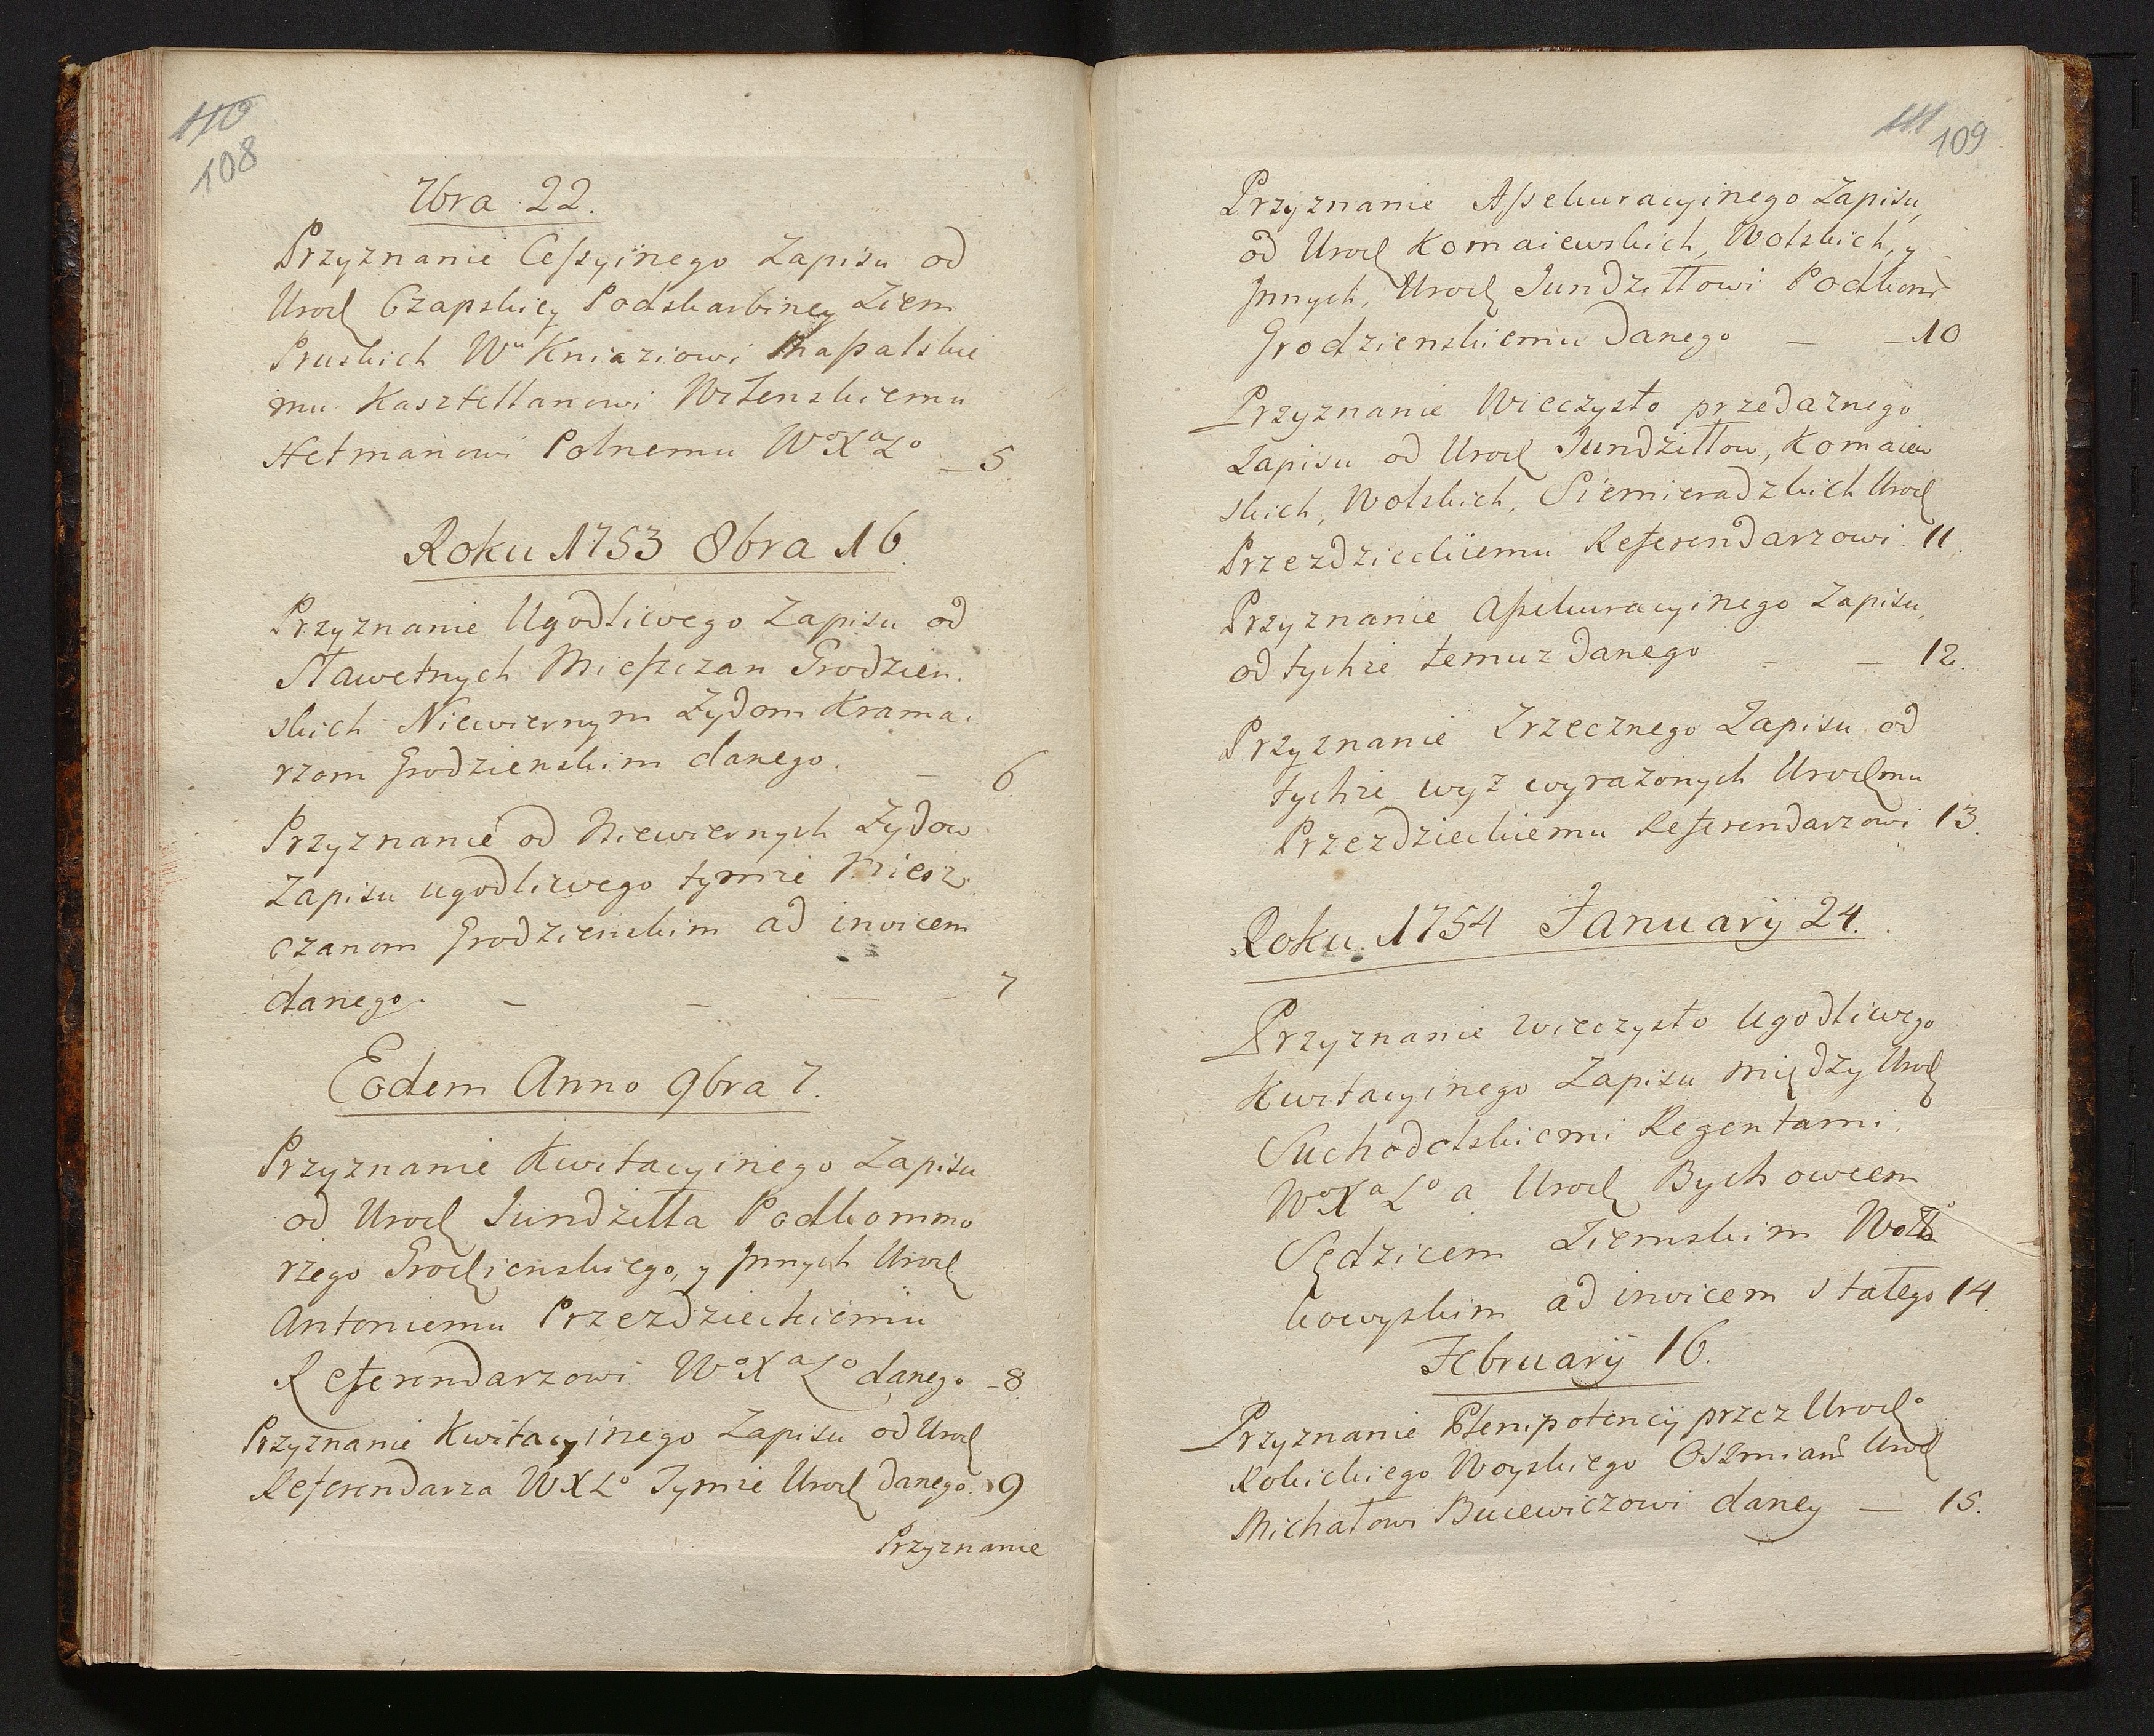 110
108
7bra 22.
Przyznanie Cessyinego Zapisu od
Urod Czapskiey Podskarbiney Ziem
Pruskich Wu Kniaziowi Massalskie
mu Kasztellanowi Wilenskiemu
Hetmanowi Polnemu WoXaLo — 5
Roku 1753 8bra 16.
Przyznanie Ugodliwego Zapisu od
Sławetnych Mieszczan Grodzien.
skich Niewiernym Żydom Krama.
rzom Grodzienskim danego. — 6.
Przyznanie od Niewiernych Żydow
Zapisu ugodliwego tymże Miesz
czanom Grodzienskim ad invicem
danego. — — — — 7
Eodem Anno 9bra 7.
Przyznanie Kwitacyinego Zapisu
od Urod Jundziłła Podkommo
rzego Grodzienskiego, y Jnnych Urod
Antoniemu Przezdzieckiemu
Referendarzowi WoXaLo danego — 8.
Przyznanie Kwitacyinego Zapisu od Urod
Referendarza WXLo Tymże Urod danego. 9
Przyznanie
111
109
Przyznanie Assekuracyinego Zapisu,
od Urod Komaiewskich, Wolskich, y
Jnnych, Urod Jundziłłowi Podkom
Grodzienskiemu danego — — 10
Przyznanie Wieczysto przedaznego
Zapisu od Urod Jundziłłow, Komaiew
skich, Wolskich, Siemieradzkich Urod
Przezdzieckiemu Referendarzowi. 11.
Przyznanie Assekuracyinego Zapisu,
od tychże temuz danego — — 12.
Przyznanie Zrzecznego Zapisu od
tychże wyż wyrażonych Urodmu
Przezdzieckiemu Referendarzowi 13.
Roku 1754 January 24.
Przyznanie wieczysto ugodliwego
Kwitacyinego Zapisu między Urod
Suchodolskiemi Regentami,
WoXaLo a Urod Bychowcem
Sędzicem Ziemskim Woł
kowyskim ad invicem stałego 14.
February 16.
Przyznanie Plenipotencij przez Urodo
Kobickiego Woyskiego Oszmian Urod
Michałowi Bucewiczowi daney — 15.